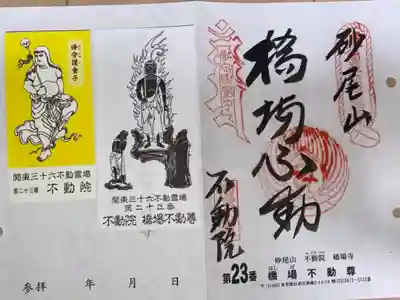 砂尾山
橋場不動
不動院
砂尾山 不動院 橋場寺
第23番 橋場不動尊
関東三十六不動霊場
第二十三番 不動院
関東三十六不動霊場
第二十三番
不動院 橋場不動尊
参拝 年 月 日